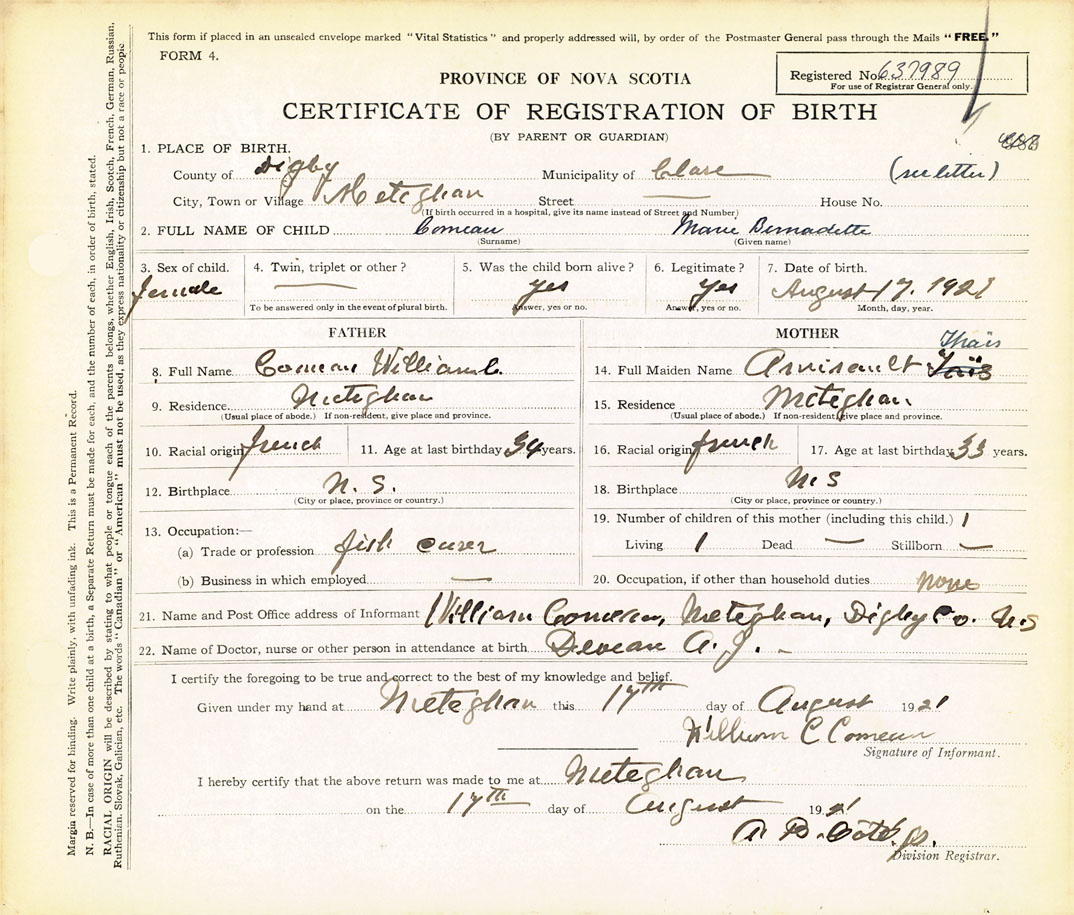 This form if placed in an unsealed envelope marked "Vital Statistics" and properly addressed will, by order of the Postmaster General pass through the Mails "FREE."
FORM 4.
PROVINCE OF NOVA SCOTIA
Registered No. 637989
For use of Registrar General only.
CERTIFICATE OF REGISTRATION OF BIRTH
(BY PARENT OR GUARDIAN)
1. PLACE OF BIRTH.
County of Digby Municipality of Clare (see letter)
City, Town or Village Meteghan Street House No.
(If birth occurred in a hospital, give its name instead of Street and Number)
2. FULL NAME OF CHILD Comeau Marie Bernadette
(Surname) (Given name)
3. Sex of child. 4. Twin, triplet or other? 5. Was the child born alive? 6. Legitimate? 7. Date of birth.
female yes yes August 17. 1921
To be answered only in the event of plural birth. Answer, yes or no. Answer, yes or no. Month, day, year.
FATHER
8. Full Name Comeau William C.
9. Residence Meteghan
(Usual place of abode.) If non-resident, give place and province.
10. Racial origin french 11. Age at last birthday 34 years.
12. Birthplace N. S.
(City or place, province or country.)
13. Occupation:—
(a) Trade or profession fish curer
(b) Business in which employed
MOTHER
Thaïs
14. Full Maiden Name Amirault Taïs
15. Residence Meteghan
(Usual place of abode.) If non-resident, give place and province.
16. Racial origin french 17. Age at last birthday 33 years.
18. Birthplace N. S
(City or place, province or country.)
19. Number of children of this mother (including this child.) 1
Living 1 Dead — Stillborn —
20. Occupation, if other than household duties none
21. Name and Post Office address of Informant William Comeau, Meteghan, Digby Co. N.S
22. Name of Doctor, nurse or other person in attendance at birth Deveau A. J. -
I certify the foregoing to be true and correct to the best of my knowledge and belief.
Given under my hand at Meteghan this 17th day of August 1921
William C Comeau
Signature of Informant.
I hereby certify that the above return was made to me at Meteghan
on the 17th day of August 1921
Division Registrar.
Margin reserved for binding. Write plainly, with unfading ink. This is a Permanent Record.
N. B.—In case of more than one child at a birth, a Separate Return must be made for each, and the number of each, in order of birth, stated.
RACIAL ORIGIN will be described by stating to what people or tongue each of the parents belongs, whether English, Irish, Scotch, French, German, Russian,
Ruthenian, Slovak, Galician, etc. The words "Canadian" or "American" must not be used, as they express nationality or citizenship but not a race or people